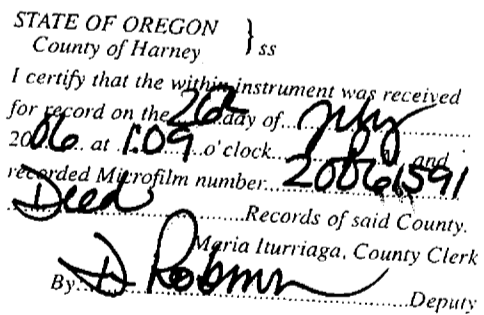 STATE OF OREGON } ss
County of Harney
I certify that the within instrument was received
for record on the 26 day of July
2006 at 1:09 o'clock and
recorded Microfilm number 20061591
Deed Records of said County.
Maria Iturriaga, County Clerk
By D Robinson Deputy